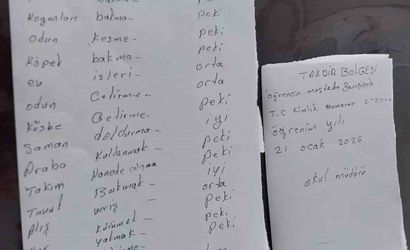 Koyunları bakma - peki
odun kesme - peki
köpek bakma - peki
ev işleri - orta
odun Getirme - orta
Küsbe Getirme - peki
Saman doldurma - iyi
Araba Kullanmak - peki
Takım peki
Tavuk Bakmak - iyi
Alış veriş - orta
peki
yakmak - peki
TAKDİR BELGESİ
öğrencin mustafa
T.C Kimlik Numarası
öğrenim yılı
21 ocak 2026
okul müdürü